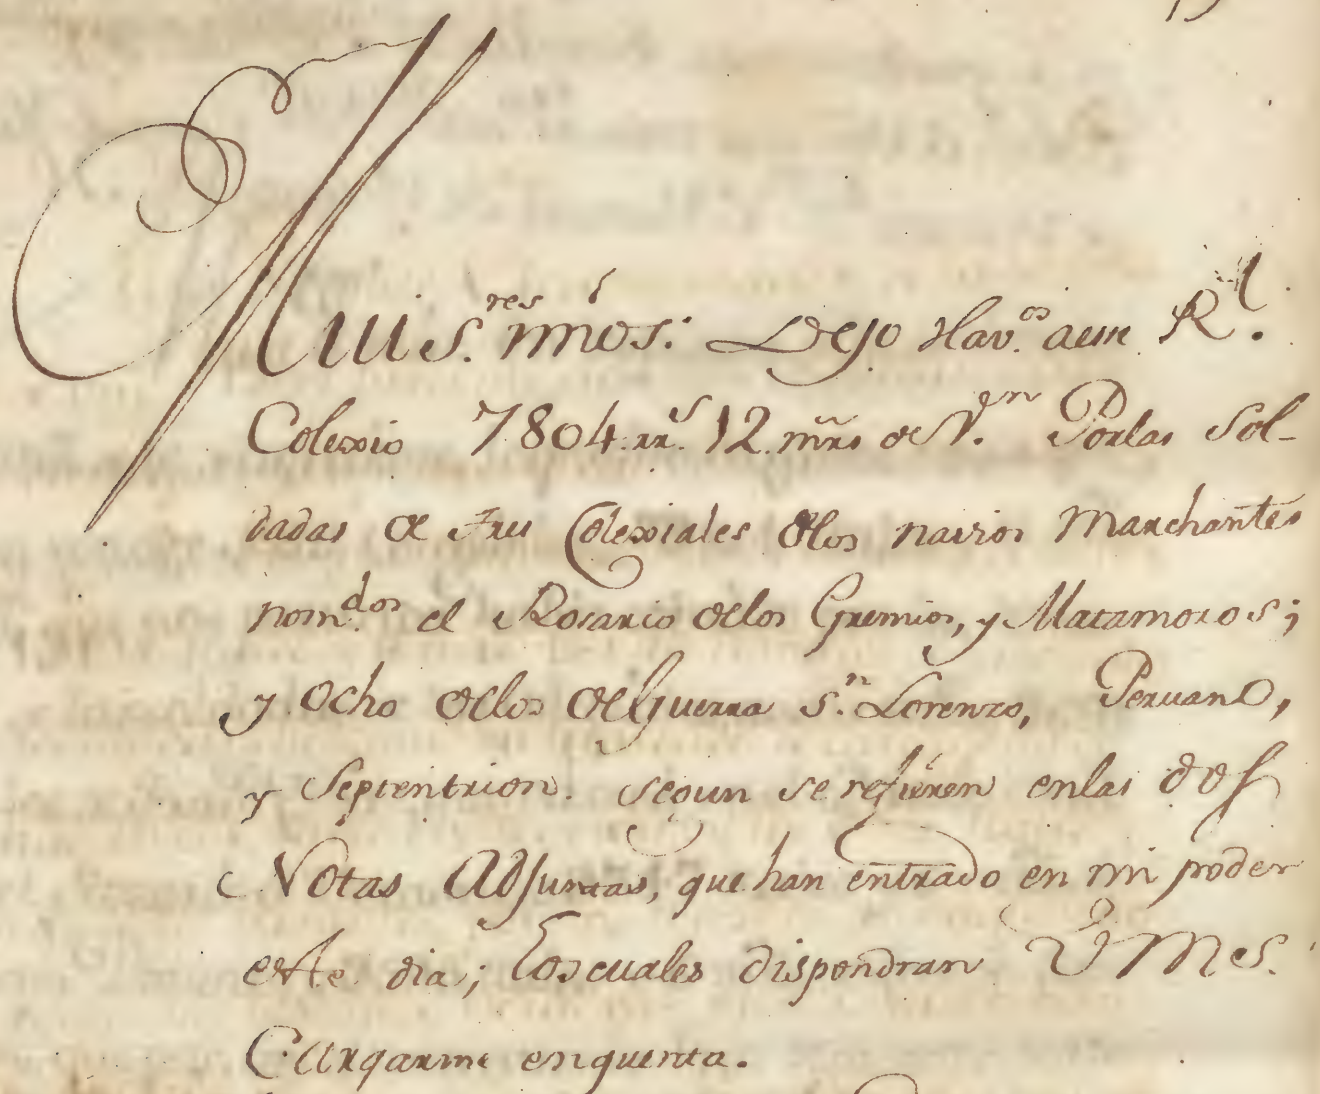 Mui S.res mios: Dejo Hav.os a ese R.l
Colexio 7804 rr.s 12 mrs de V.on Por las Sol-
dadas de tres Colexiales de los navios Marchantes
nom.dos el Rosario de los Gremios, y Matamoros;
y Ocho de los de Guerra S.n Lorenzo, Peruano,
y Septentrion. Segun se refieren en las dos
Notas Adjuntas, que han entrado en mi poder
este dia; Los cuales dispondran VMes.
Cargarme en quenta.